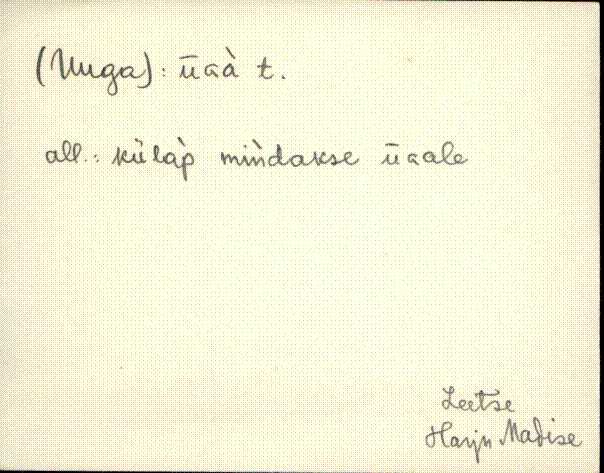 (Uuga): ūᴦà t.
all.: külàp miǹdakse ūᴦale
Leetse
Harju Madise